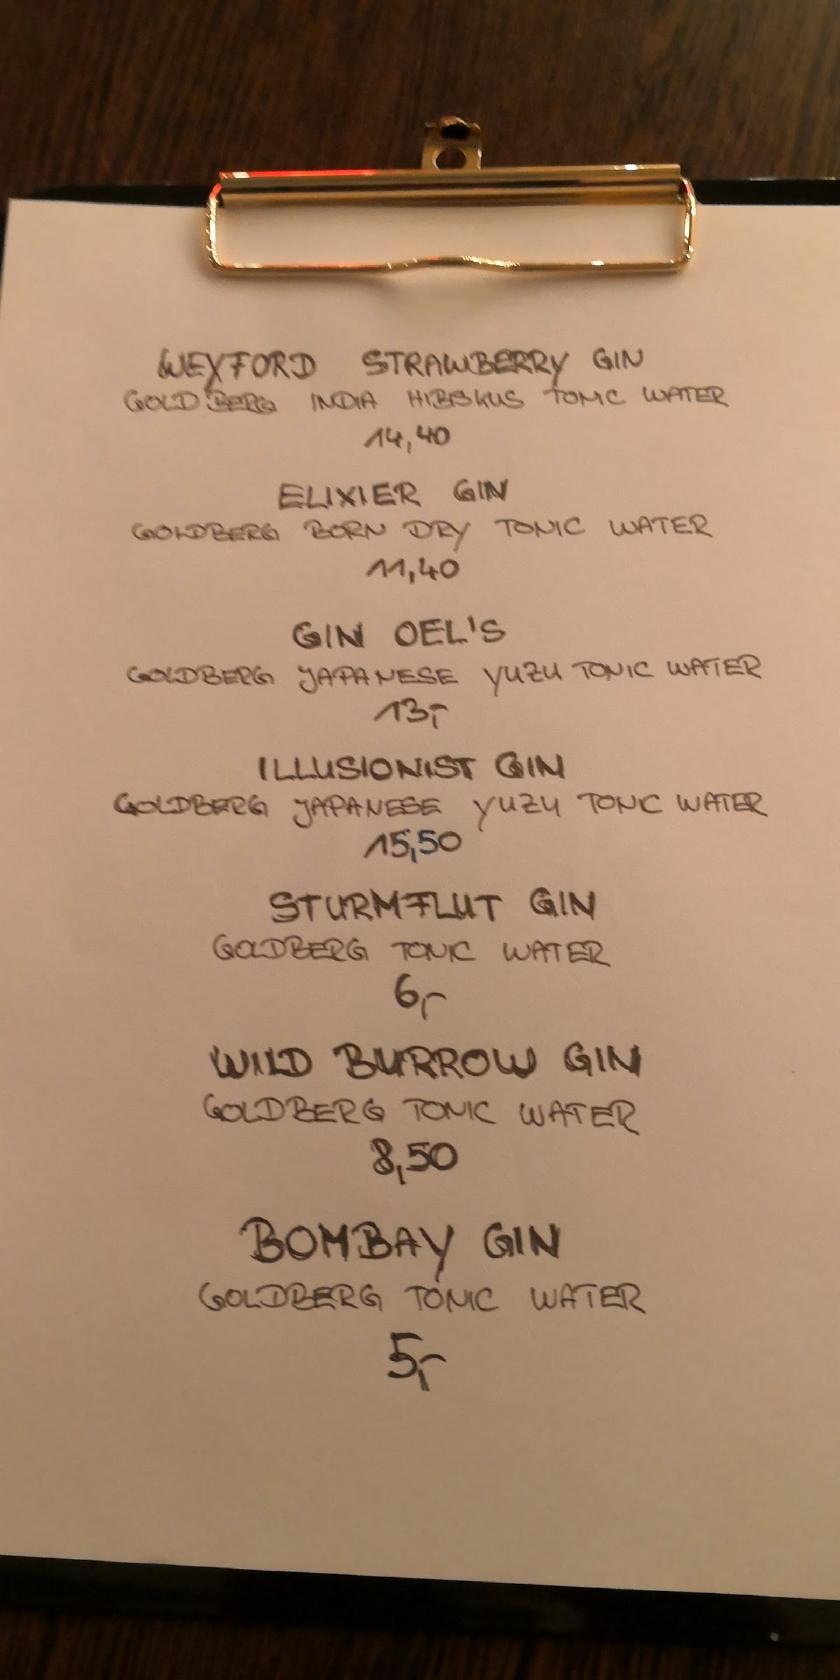 WEXFORD STRAWBERRY GIN
GOLDBERG INDIA HIBISKUS TONIC WATER
14,40
ELIXIER GIN
GOLDBERG BORN DRY TONIC WATER
11,40
GIN OEL'S
GOLDBERG JAPANESE YUZU TONIC WATER
13,-
ILLUSIONIST GIN
GOLDBERG JAPANESE YUZU TONIC WATER
15,50
STURMFLUT GIN
GOLDBERG TONIC WATER
6,-
WILD BURROW GIN
GOLDBERG TONIC WATER
8,50
BOMBAY GIN
GOLDBERG TONIC WATER
5,-